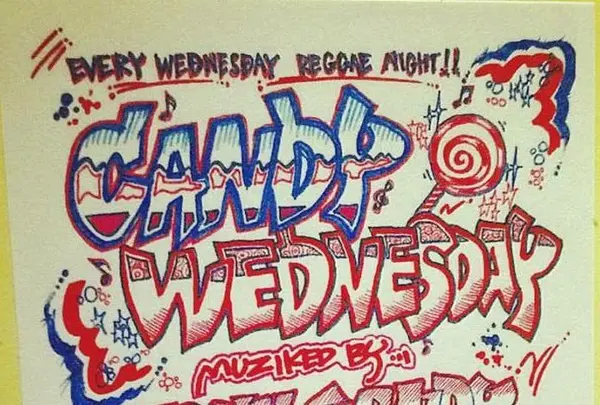 EVERY WEDNESDAY REGGAE NIGHT!!
CANDY
WEDNESDAY
MUZIKED BY...